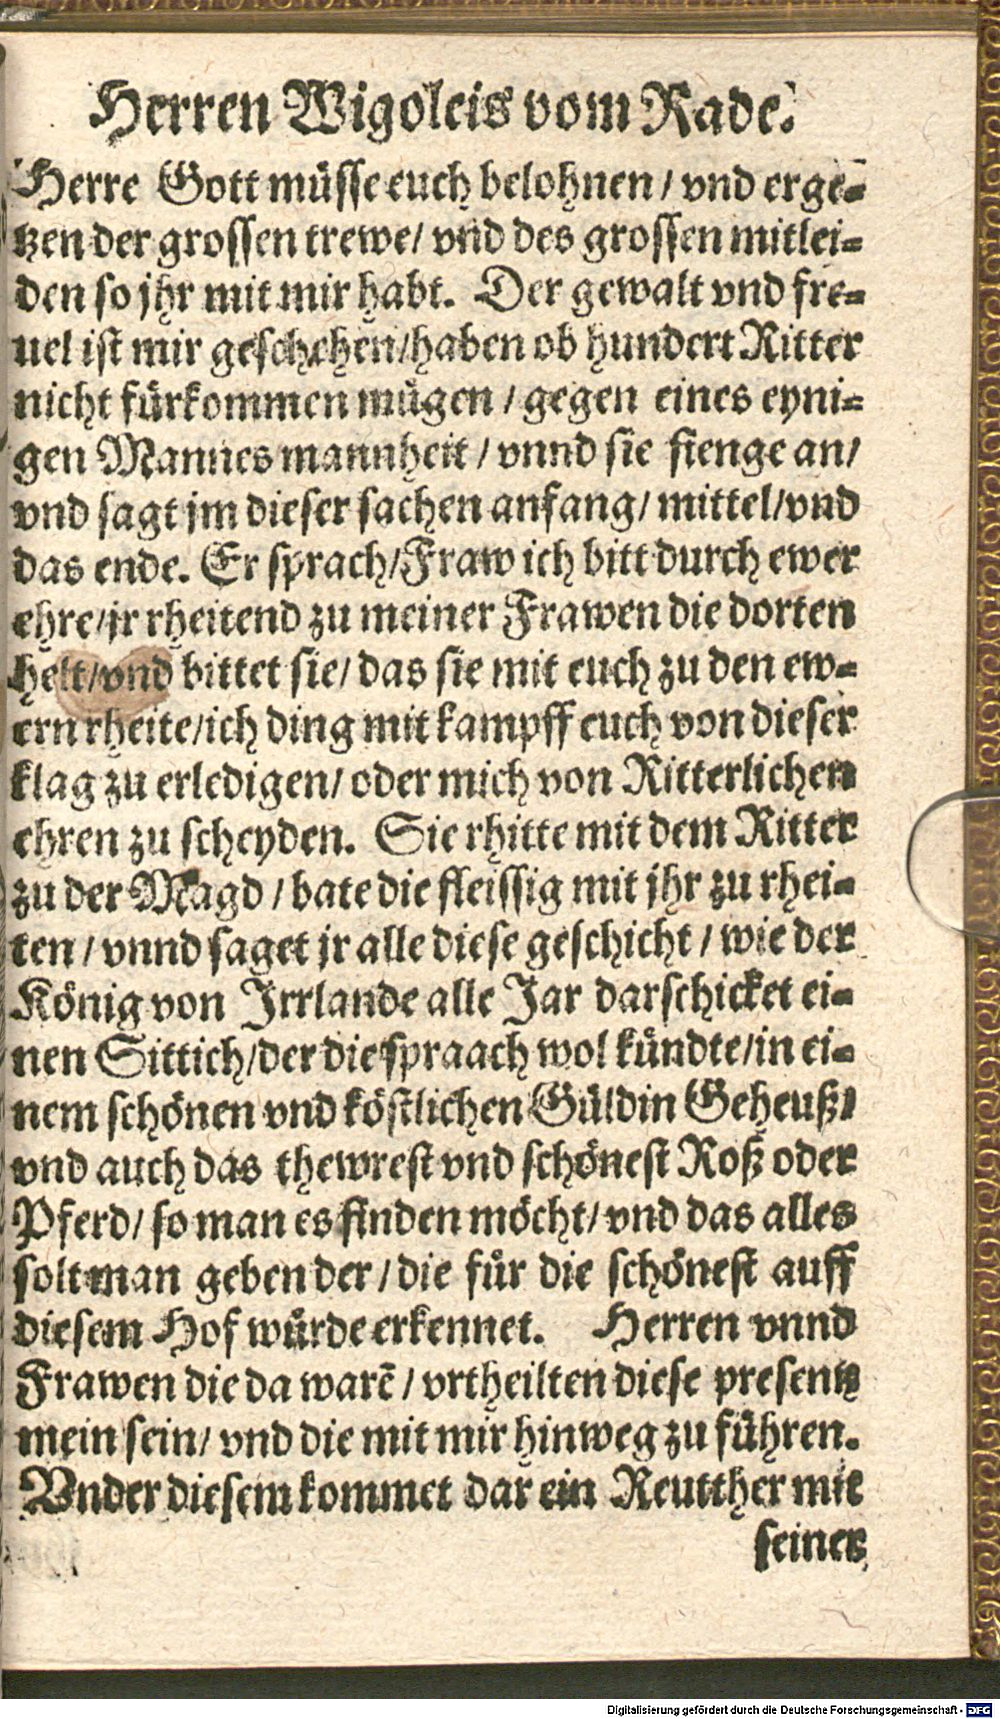 Herren Wigoleis vom Rade.
Herre Gott müsse euch belohnen / vnd erge-
tzen der grossen trewe / vnd des grossen mitlei-
den so jhr mit mir habt. Der gewalt vnd fre-
uel ist mir geschehen / haben ob hundert Ritter
nicht fürkommen mügen / gegen eines eyni-
gen Mannes mannheit / vnnd sie fienge an /
vnd sagt jm dieser sachen anfang / mittel / vnd
das ende. Er sprach / Fraw ich bitt durch ewer
ehre / jr rheitend zu meiner Frawen die dorten
helt / vnd bittet sie / das sie mit euch zu den ew-
ern rheite / ich ding mit kampff euch von dieser
klag zu erledigen / oder mich von Ritterlichen
ehren zu scheyden. Sie rhitte mit dem Ritter
zu der Magd / bate die fleissig mit jhr zu rhei-
ten / vnnd saget jr alle diese geschicht / wie der
König von Irrlande alle Jar darschicket ei-
nen Sittich / der die spraach wol kündte / in ei-
nem schönen vnd köstlichen Güldin Geheuß /
vnd auch das thewrest vnd schönest Roß oder
Pferd / so man es finden möcht / vnd das alles
solt man geben der / die für die schönest auff
diesem Hof würde erkennet. Herren vnnd
Frawen die da warē / vrtheilten diese presentz
mein sein / vnd die mit mir hinweg zu führen.
Vnder diesem kommet dar ein Reutther mit
seiner
Digitalisierung gefördert durch die Deutsche Forschungsgemeinschaft - DFG